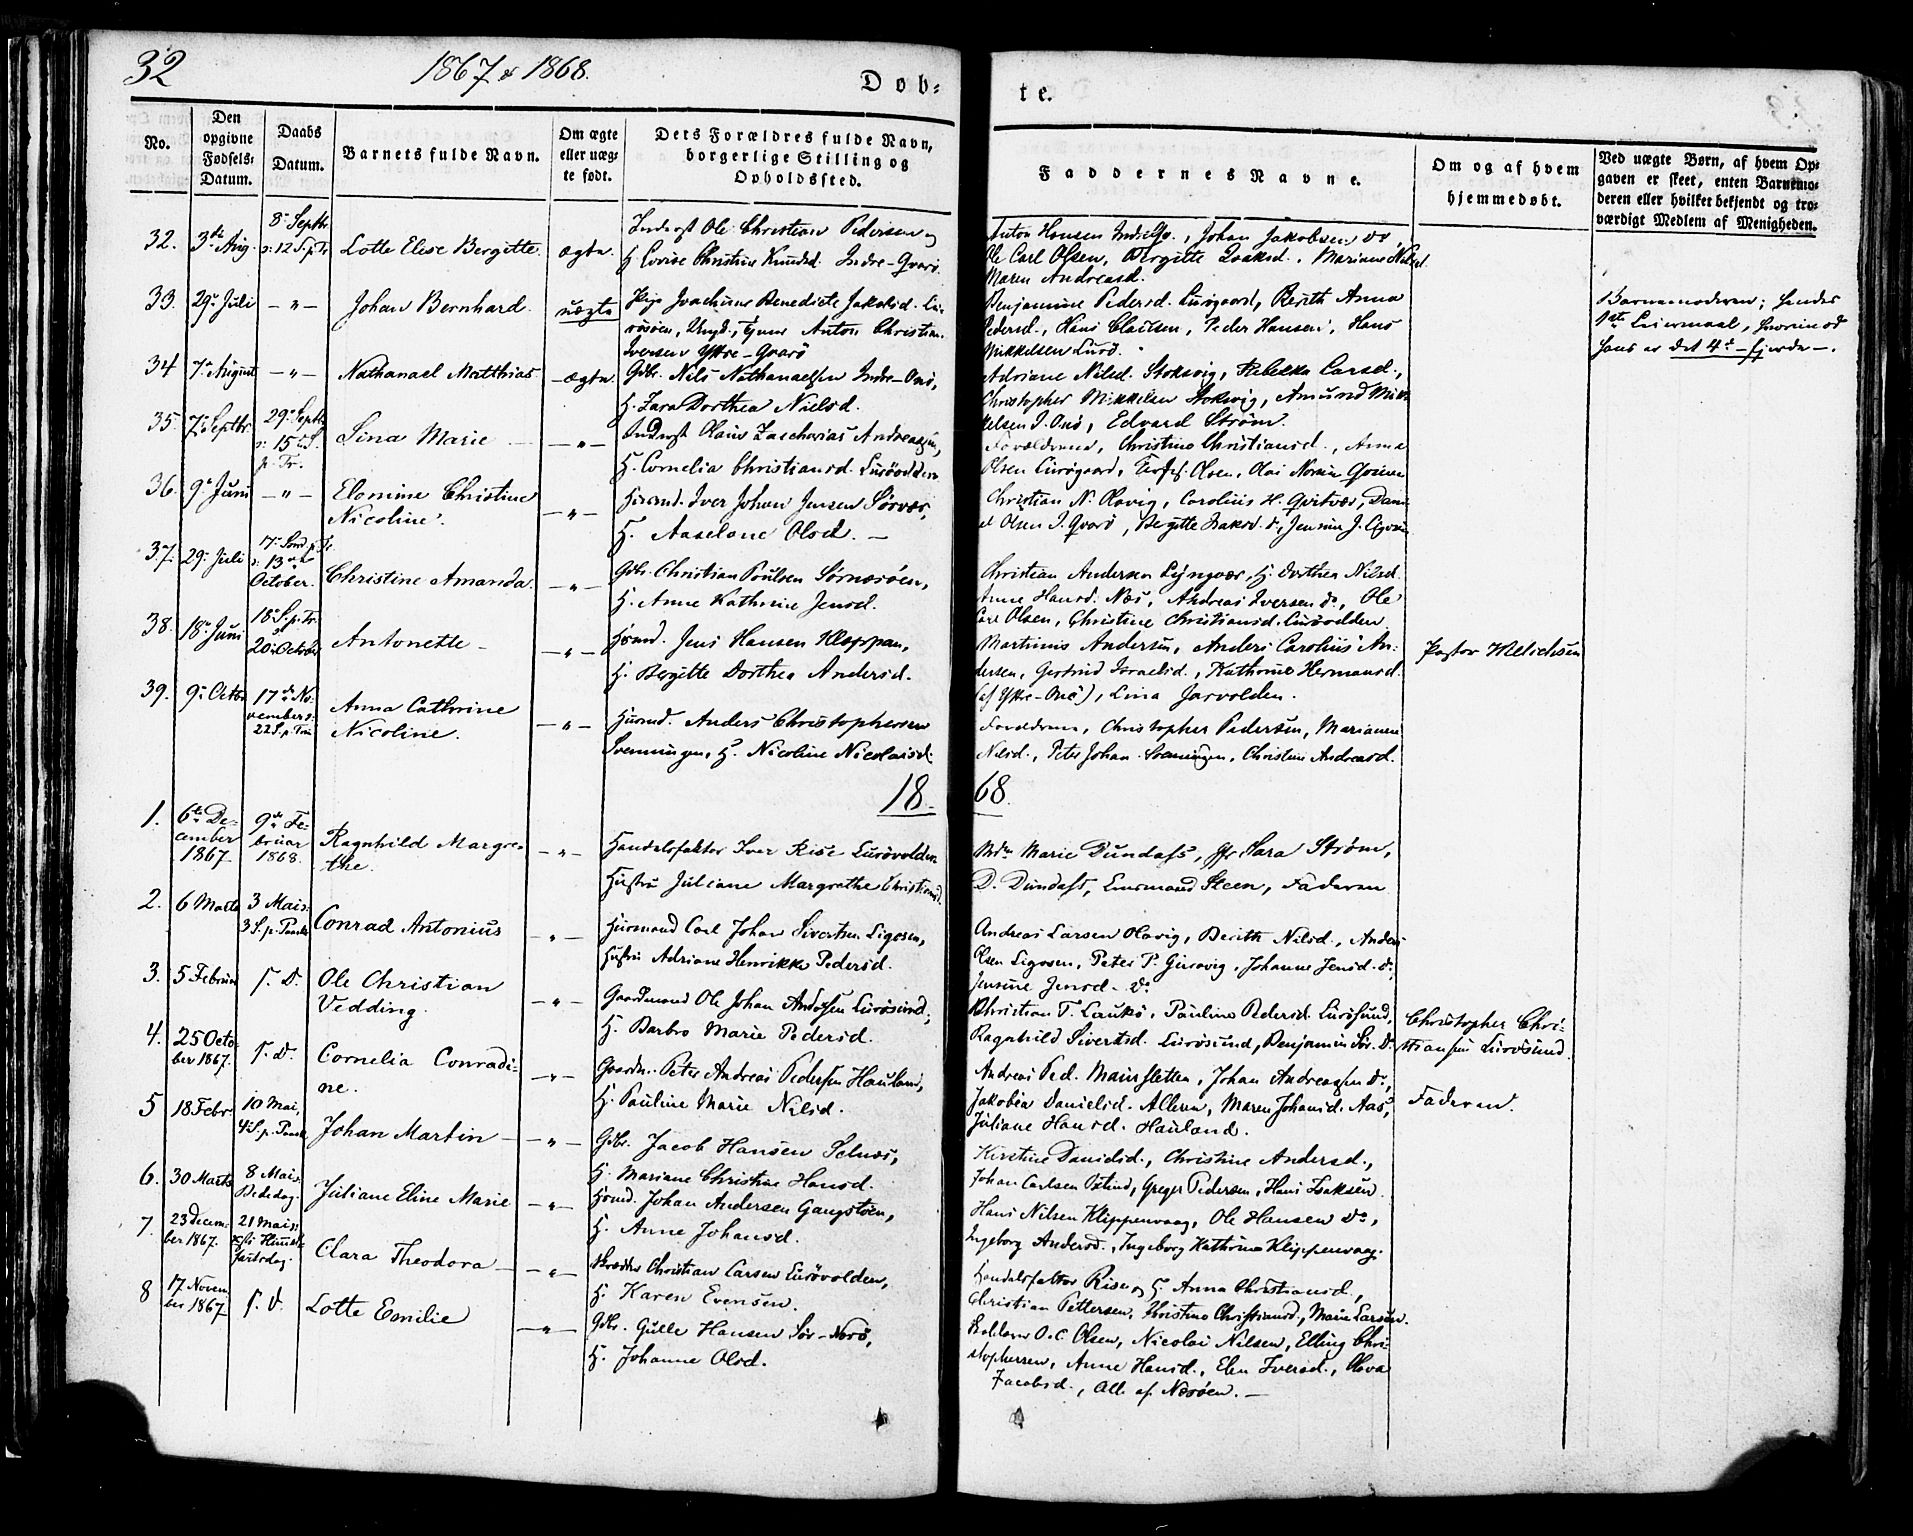 32
1867 & 1868.
Døb-
te.
No.
Den opgivne Fødsels-Datum.
Daabs Datum.
Barnets fulde Navn.
Om ægte eller uægte født.
Dets Forældres fulde Navn, borgerlige Stilling og Opholdssted.
Faddernes Navne.
Om og af hvem hjemmedøbt.
Ved uægte Børn, af hvem Opgaven er skeet, enten Barnemoderen eller hvilket bekjendt og troværdigt Medlem af Menigheden.
32. 3die Aug. 8de Septbr 12 S. p. Tr. Lotte Elise Bergitte. ægte. Ole Christian Pedersen og
H. Lovise Christine Knudsd. Indre-Qvarø
Anton Hansen, Johan Jakobsen do,
Ole Carl Olsen, Bergitte Isaksd., Mariane Nilsd.
Maren Andreasd.
33. 29 Juli - " - Johan Bernhard. uægte Joachime Benedicte Jakobsd.
Ungd., Anton Christian
Iversen Yttre-Qvarø
Benjamine Pedersd. Lurøgaard, Berith Anna
Pedersd., Hans Clausen, Peder Hansen, Hans
Mikkelsen Lurø.
Barnemoderen; hendes
1ste Leiermaal, hvorimod
hans er det 4de - fjerde -.
34 7 August - " - Nathanael Matthias ægte Gdbr. Nils Nathanaelsen Indre-Onø,
H. Zara Dorthea Nielsd.
Adriane Nilsd. Stoksvig, Rebekka Larsd.,
Christopher Mikkelsen Stoksvig, Amund Mik-
kelsen I. Onø, Edvard Strøm.
35. 7 Septbr. 29 Septbr 15 S. p. Tr. Lina Marie - " - Olaus Zacharias Andreassen,
H. Cornelia Christiansd. Lurøvolden
Forældrene, Christine Christiansd., Anna
Olsen Lurøgaard,
36. 9 Juni - " - Elomine Christine
Nicoline. - " - Huusmd. Iver Johan Jensen Sørvær,
H. Aaselone Olsd. -
Christian N. Olavig, Carolius H. Qvitvær, Dani-
el Olsen I. Qvarø, Bergitte Isaksd. do,
37. 29 Juli 17 Sønd. p. Tr. 13 October. Christine Amanda. - " - Gdbr. Christian Poulsen Sørnesøen,
H. Anne Kathrine Jensd.
Christian Andersen Lyngvær, H. Dorthea Nilsd.
Anne Hansd. Næs, Andreas Iversen do, Ole
Carl Olsen, Christine Christiansd. Lurøvolden
38. 18 Juni 18 S. p. Tr. 20 October Antonette - - " - Huusmd. Jens Hansen Kleppan,
H. Bergitte Dorthea Andersd.
Martinus Andersen, Anders Carolius An-
dersen, Gertrud Israelsd., Kathrine Hermansd.
(af Yttre-Onø), Lina Jarvolden.
Pastor
39. 9 Octbr 17de November 22 S. p. Trin. Anna Cathrine
Nicoline. - " - Huusmd. Anders Christophersen
Svenningen, H. Nicoline Nicolaisd.
Forældrene, Christopher Pedersen, Mariane
Nilsd., Peter Johan Svenningen, Christine Andreasd.
18 68.
1. 6te December 1867 9de Februar 1868. Ragnhild Margre-
the. - " - Handelsfaktor Iver Rise Lurøvolden
Hustru Juliane Margrethe Christiansd.
Marie Dundass, Sara Strøm,
D. Dundass, Steen, Faderen
2. 6 Marts 3 Mai 3 S. p. Paaske Conrad Antonius - " - Huusmand Carl Johan Sivertsen Ligosen,
Hustru Adriane Henrikke Pedersd.
Andreas Larsen Olavig, Berith Nilsd., Anders
Olsen Ligosen, Peter P. Girsavig, Johanne Jensd. do,
Jensine Jensd. do
3. 5 Februar s. D. Ole Christian
Vedding. - " - Gaardmand Ole Johan Andersen Lurøsund,
H. Barbro Marie Pedersd.
Christian T. Laukø, Pauline Pedersd. Lurøsund,
Ragnhild Sivertsd. Lurøsund, Benjamin do.
Christopher Chri-
stiansen Lurøsund.
4. 25 October 1867. s. D. Cornelia Conradi-
ne. - " - Gaardm. Peter Andreas Pedersen Hauland,
H. Pauline Marie Nilsd.
Andreas Ped. Mainsletten, Johan Andreassen do,
Jakobea Danielsd. Alleren, Maren Johansd. Aas,
Juliane Hansd. Hauland.
Faderen.
5 18 Febr 10 Mai, 4 S. p. Paaske Johan Martin - - " - Gdbr. Jacob Hansen Selnæs,
H. Mariane Christine Hansd.
Kirstine Danielsd., Christine Andersd.,
Johan Carlsen, Greger Pedersen, Hans Isaksen
6. 30 Marts 8 Mai Bededag. Juliane Eline Marie - " - Huusmd. Johan Andersen Gangstøen,
H. Anne Johansd.
Hans Nilsen Klippenvaag, Ole Hansen do,
Ingeborg Andersd., Ingeborg Kathrine Klippenvaag.
7. 23 December 1867. 21 Mai Christi Himmelfartsdag. Clara Theodora - - " - Skrædder Christian Larsen Lurøvolden,
H. Karen Evensen.
Handelsfaktor Rise og H. Anna Christiansd.,
Christian Pettersen, Christine Christiansd., Marie Larsen.
8 17 November 1867 s. d. Lotte Emilie - " - Gdbr. Gulle Hansen Sør-Nesø,
H. Johanne Olsd.
O. C. Olsen, Nicolai Nilsen, Elling Chri-
stophersen, Anne Hansd., Elen Iversd., Olava
Jacobsd., Alle af Nesøen. -